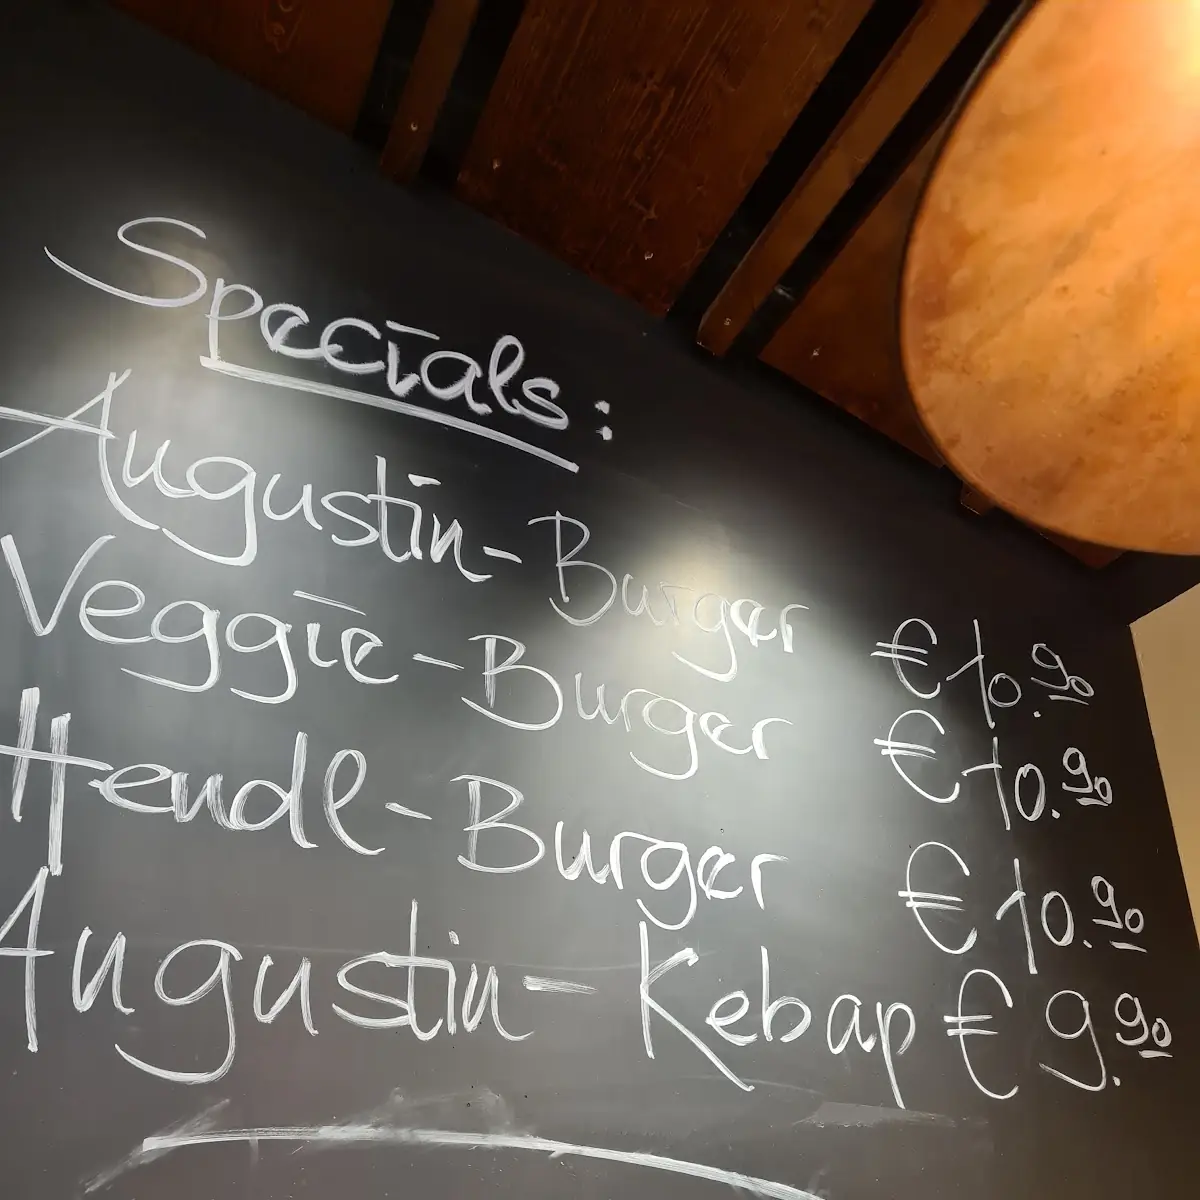 Specials:
Augustin-Burger € 10.90
Veggie-Burger € 10.90
Hendl-Burger € 10.90
Augustin-Kebap € 9.90